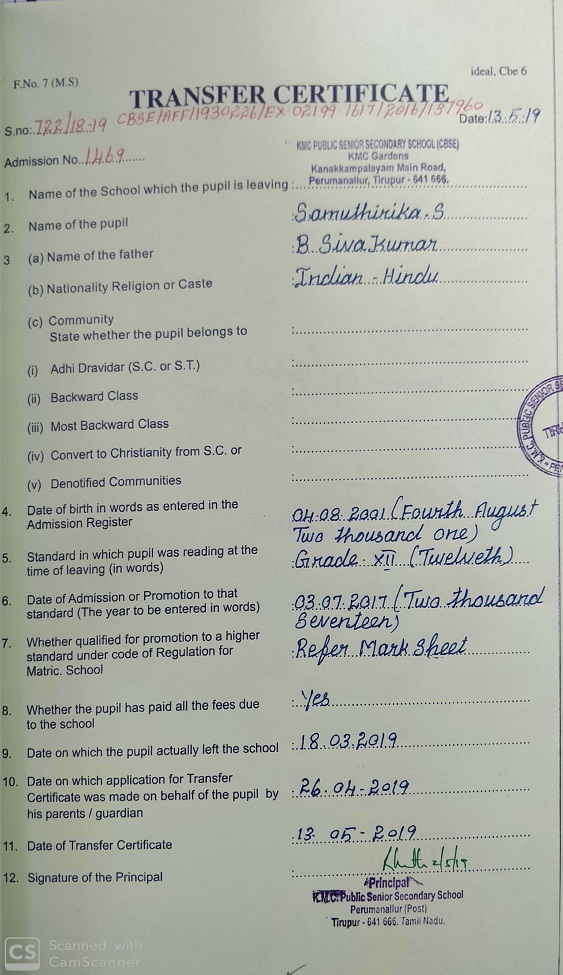 F.No. 7 (M.S)
ideal, Cbe 6
TRANSFER CERTIFICATE
S.no:.722/18-19 CBSE/AFF/1930226/EX-02199-1617/2016/137960
Date:13.5.19
Admission No..1469......
KMC PUBLIC SENIOR SECONDARY SCHOOL (CBSE)
KMC Gardens
Kanakkampalayam Main Road,
Perumanallur, Tirupur - 641 666.
1. Name of the School which the pupil is leaving :
2. Name of the pupil :Samuthirika.S
3 (a) Name of the father :B.SivaKumar
(b) Nationality Religion or Caste :Indian - Hindu
(c) Community
State whether the pupil belongs to :
(i) Adhi Dravidar (S.C. or S.T.) :
(ii) Backward Class :
(iii) Most Backward Class :
(iv) Convert to Christianity from S.C. or :
(v) Denotified Communities :
K.M.C. PUBLIC SENIOR SE
4. Date of birth in words as entered in the
Admission Register
04.08.2001 (Fourth August
Two thousand one)
5. Standard in which pupil was reading at the
time of leaving (in words)
:Grade XII (Twelveth)
6. Date of Admission or Promotion to that
standard (The year to be entered in words)
:03.07.2017 (Two thousand
Seventeen)
7. Whether qualified for promotion to a higher
standard under code of Regulation for
Matric. School
:Refer Mark Sheet
8. Whether the pupil has paid all the fees due
to the school
:Yes
9. Date on which the pupil actually left the school :18.03.2019
10. Date on which application for Transfer
Certificate was made on behalf of the pupil by
his parents / guardian
:26-04-2019
11. Date of Transfer Certificate :13-05-2019
12. Signature of the Principal :
2/5/19
Principal
K.M.C. Public Senior Secondary School
Perumanallur (Post)
Tirupur - 641 666. Tamil Nadu.
CS Scanned with
CamScanner